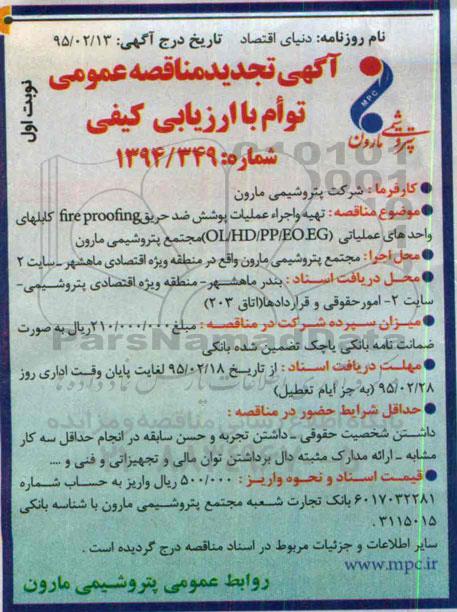 نام روزنامه: دنیای اقتصاد تاریخ درج آگهی: ۹۵/۰۲/۱۳
آگهی تجدید مناقصه عمومی
توأم با ارزیابی کیفی
شماره: ۱۳۹۴/۳۴۹
نوبت اول
MPC
پتروشیمی مارون
کارفرما: شرکت پتروشیمی مارون
موضوع مناقصه: تهیه واجراء عملیات پوشش ضد حریق fire proofing کابلهای
واحد های عملیاتی (OL/HD/PP/EO.EG) مجتمع پتروشیمی مارون
محل اجرا: مجتمع پتروشیمی مارون واقع در منطقه ویژه اقتصادی ماهشهر ـ سایت ۲
محل دریافت اسناد: بندر ماهشهر- منطقه ویژه اقتصادی پتروشیمی-
سایت ۲- امورحقوقی و قراردادها(اتاق ۲۰۳)
میزان سپرده شرکت در مناقصه: مبلغ ۲۱۰/۰۰۰/۰۰۰ریال به صورت
ضمانت نامه بانکی یاچک تضمین شده بانکی
مهلت دریافت اسناد: از تاریخ ۹۵/۰۲/۱۸ لغایت پایان وقت اداری روز
۹۵/۰۲/۲۸ (به جز ایام تعطیل)
حداقل شرایط حضور در مناقصه:
داشتن شخصیت حقوقی ـ داشتن تجربه و حسن سابقه در انجام حداقل سه کار
مشابه ـ ارائه مدارک مثبته دال برداشتن توان مالی و تجهیزاتی و فنی و ....
قیمت اسناد و نحوه واریز: ۵۰۰/۰۰۰ ریال واریز به حساب شماره
۶۰۱۷۰۳۲۲۸۱ بانک تجارت شعبه مجتمع پتروشیمی مارون با شناسه بانکی
۳۱۱۵۰۱۵ .
سایر اطلاعات و جزئیات مربوط در اسناد مناقصه درج گردیده است .
www.mpc.ir
روابط عمومی پتروشیمی مارون
ParsNamadData